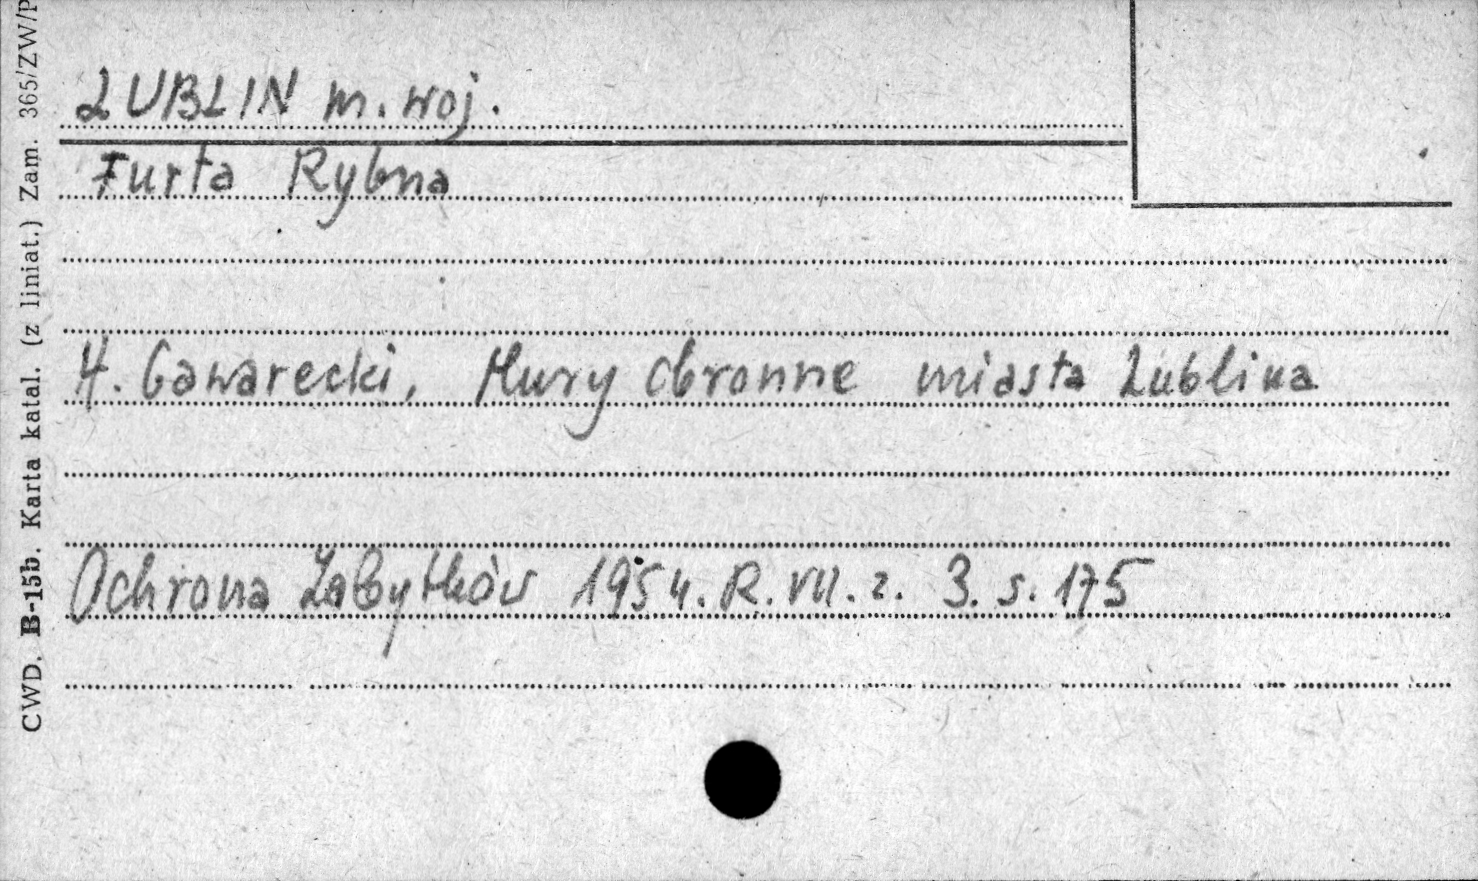 LUBLIN m. woj.
Furta Rybna
H. Gawarecki, Mury obronne miasta Lublina
Ochrona Zabytków 1954. R. VII. z. 3. s. 175
CWD. B-15b. Karta katal. (z liniat.) Zam. 365/ZW/P